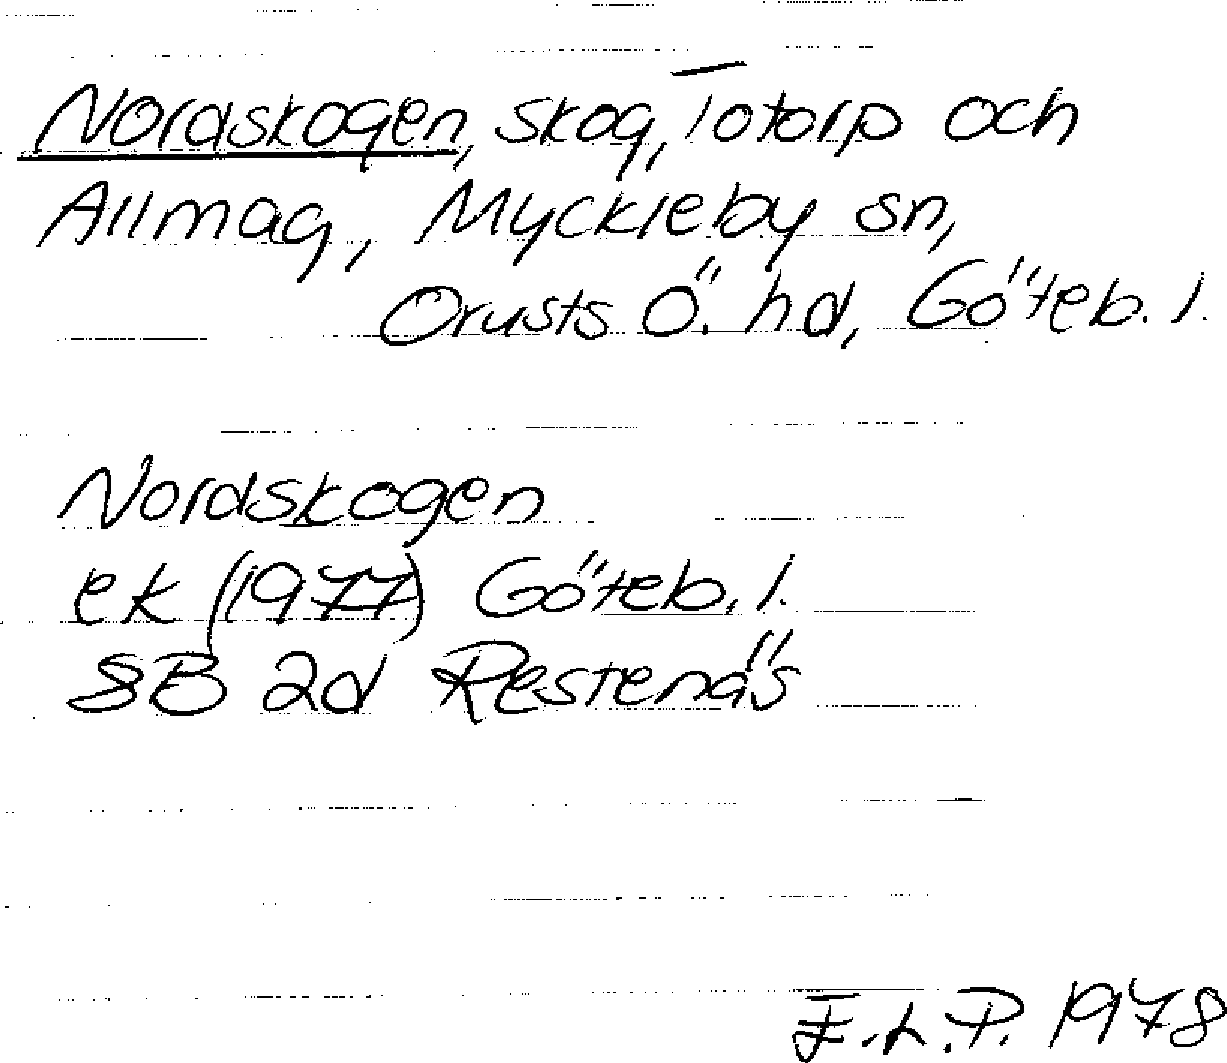 Nordskogen, skog, Totorp och
Allmag, Myckleby sn,
Orusts Ö. hd, Göteb. l.
Nordskogen
ek (1977) Göteb. l.
8B 2d Restenäs
E.L.P. 1978